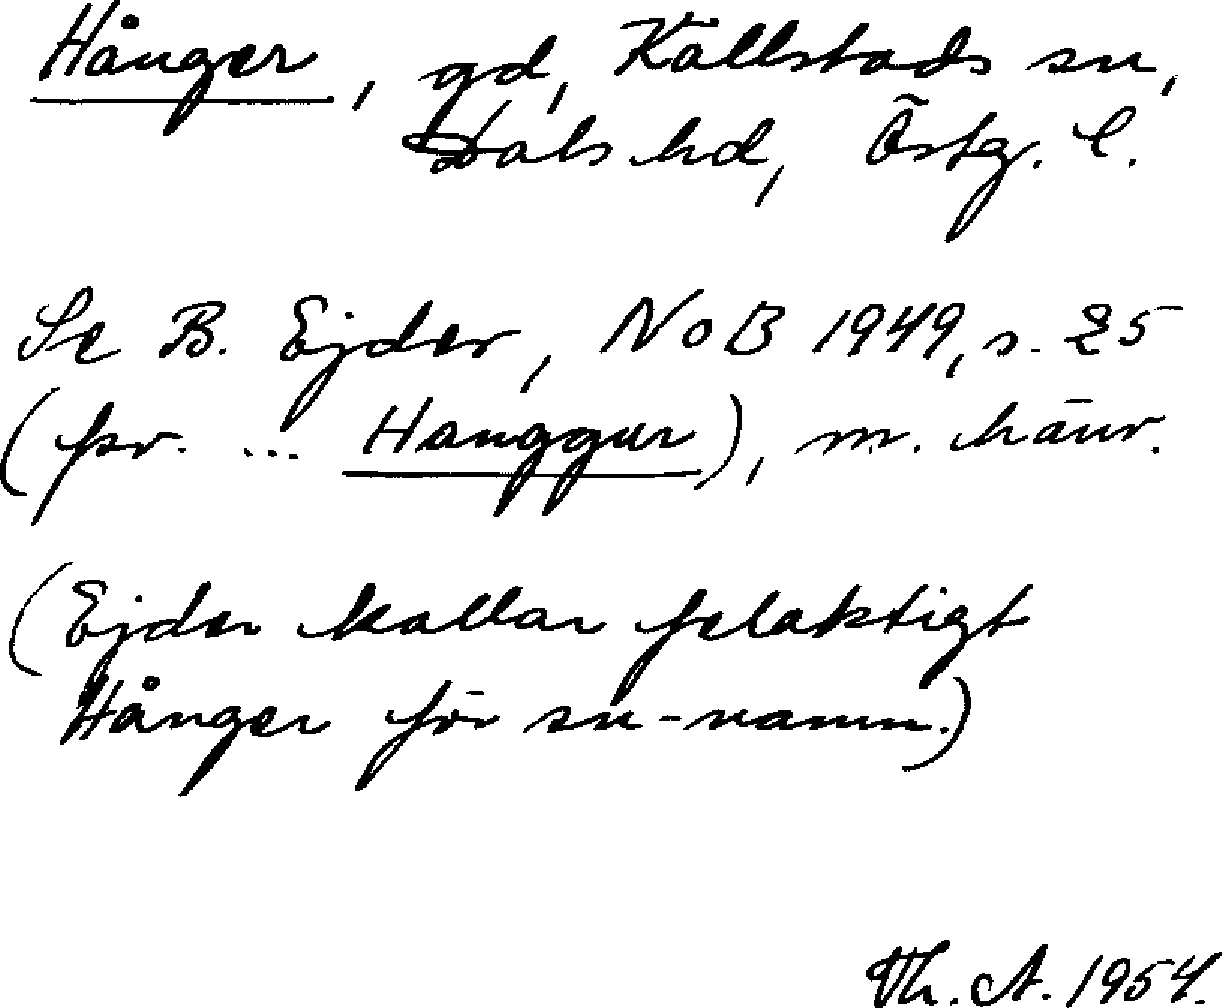 Hånger, gd, Källstads sn,
Dals hd, Östg. l.
Se B. Ejder, NoB 1949, s. 25
(fsv. ... Hanggur), m. hänv.
(Ejder kallar felaktigt
Hånger för sn-namn.)
Th. A. 1954.